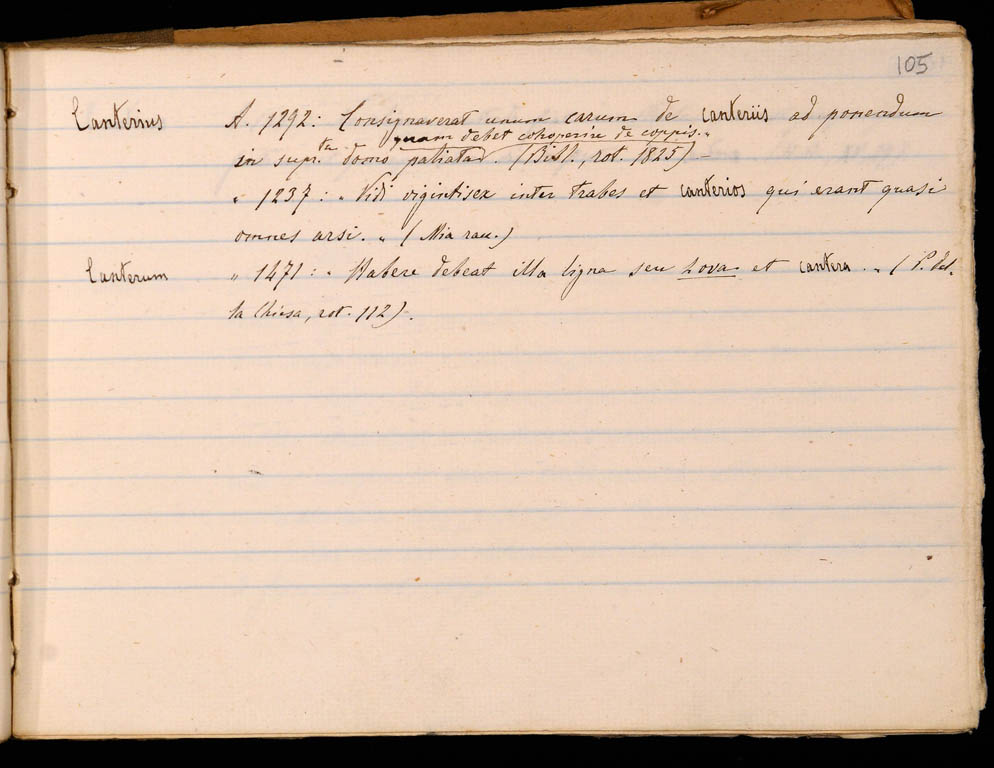 105
Canterius A. 1292: Consignaverat unum carum de canteriis ad ponendum
quam debet cohoperire de coppis."
in supr.ta domo paliata. (Bibl., rot. 1825) –
" 1237: "Vidi vigintisex inter trabes et canterios qui erant quasi
omnes arsi. " (Mia rac.)
Canterum " 1471: " Habere debeat illa ligna seu hova et cantera. " (P. del-
la Chiesa, rot. 112).